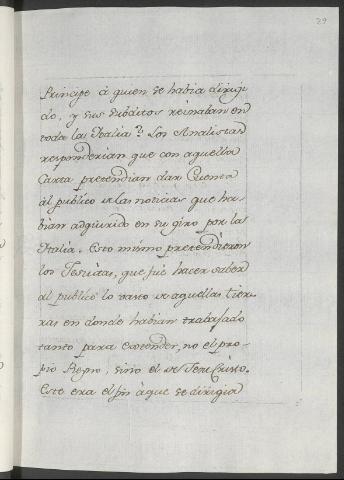 29
Principe à quien se habia dirigi
do, y sus subditos reinaban en
toda la Italia? Los Analistas
responderian que con aquella
Carta pretendian dar Cuenta
al publico de las noticias que ha-
bian adquirido en su giro por la
Italia. Esto mismo pretendieron
los Jesuitas, que fué hacer saber
al publico lo vasto de aquellas tier-
ras en donde habian trabajado
tanto para extender, no el pro-
pio Regno, sino el de Jesu Cristo.
Este era el fin à que se dirigia